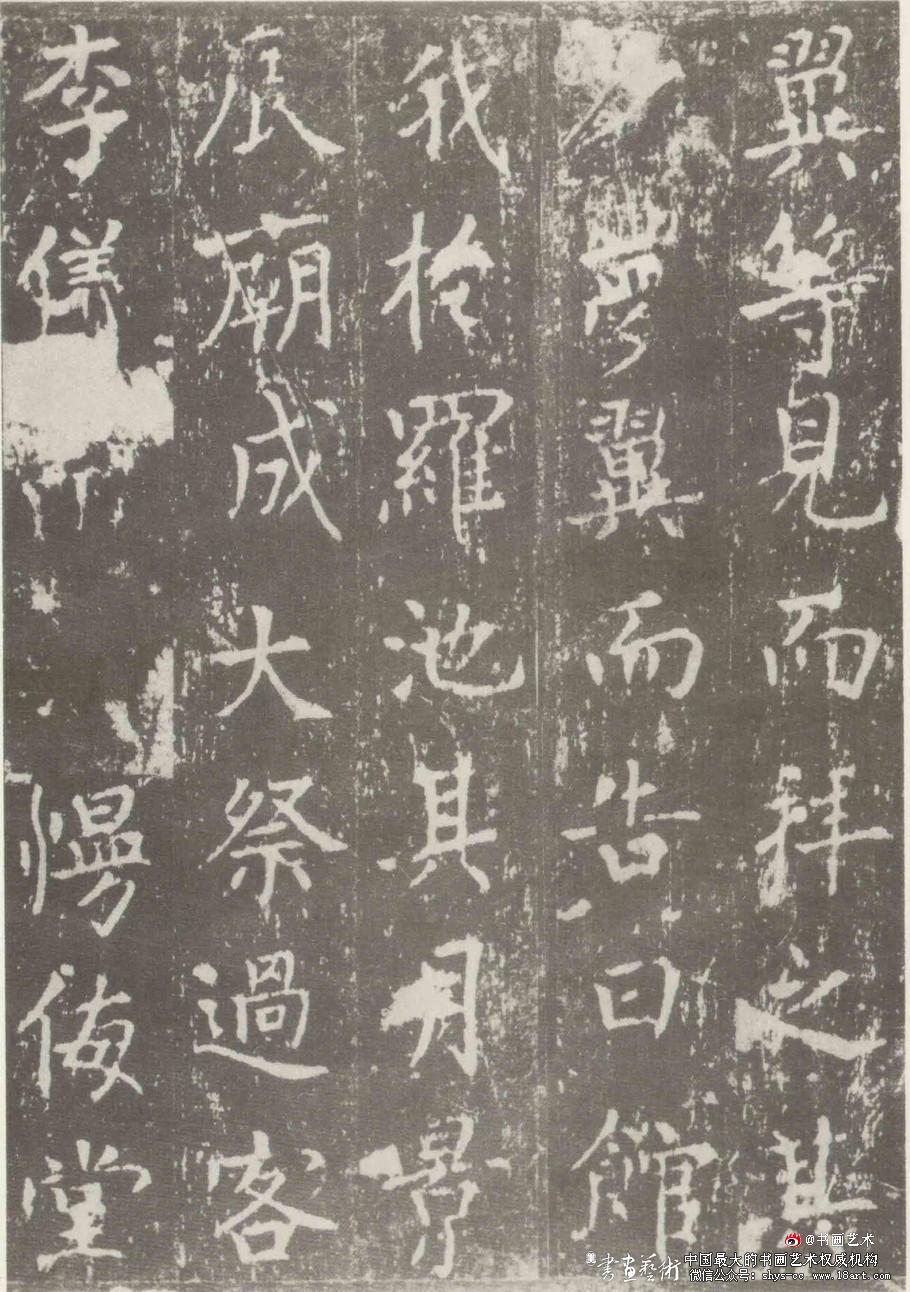 翼等見而拜之其
夕夢翼而告曰館
我於羅池其月景
辰廟成大祭過客
李儀慢侮堂
@书画艺术
書畫藝術
中国最大的书画艺术权威机构
微信公众号：shys-cc www.18art.com